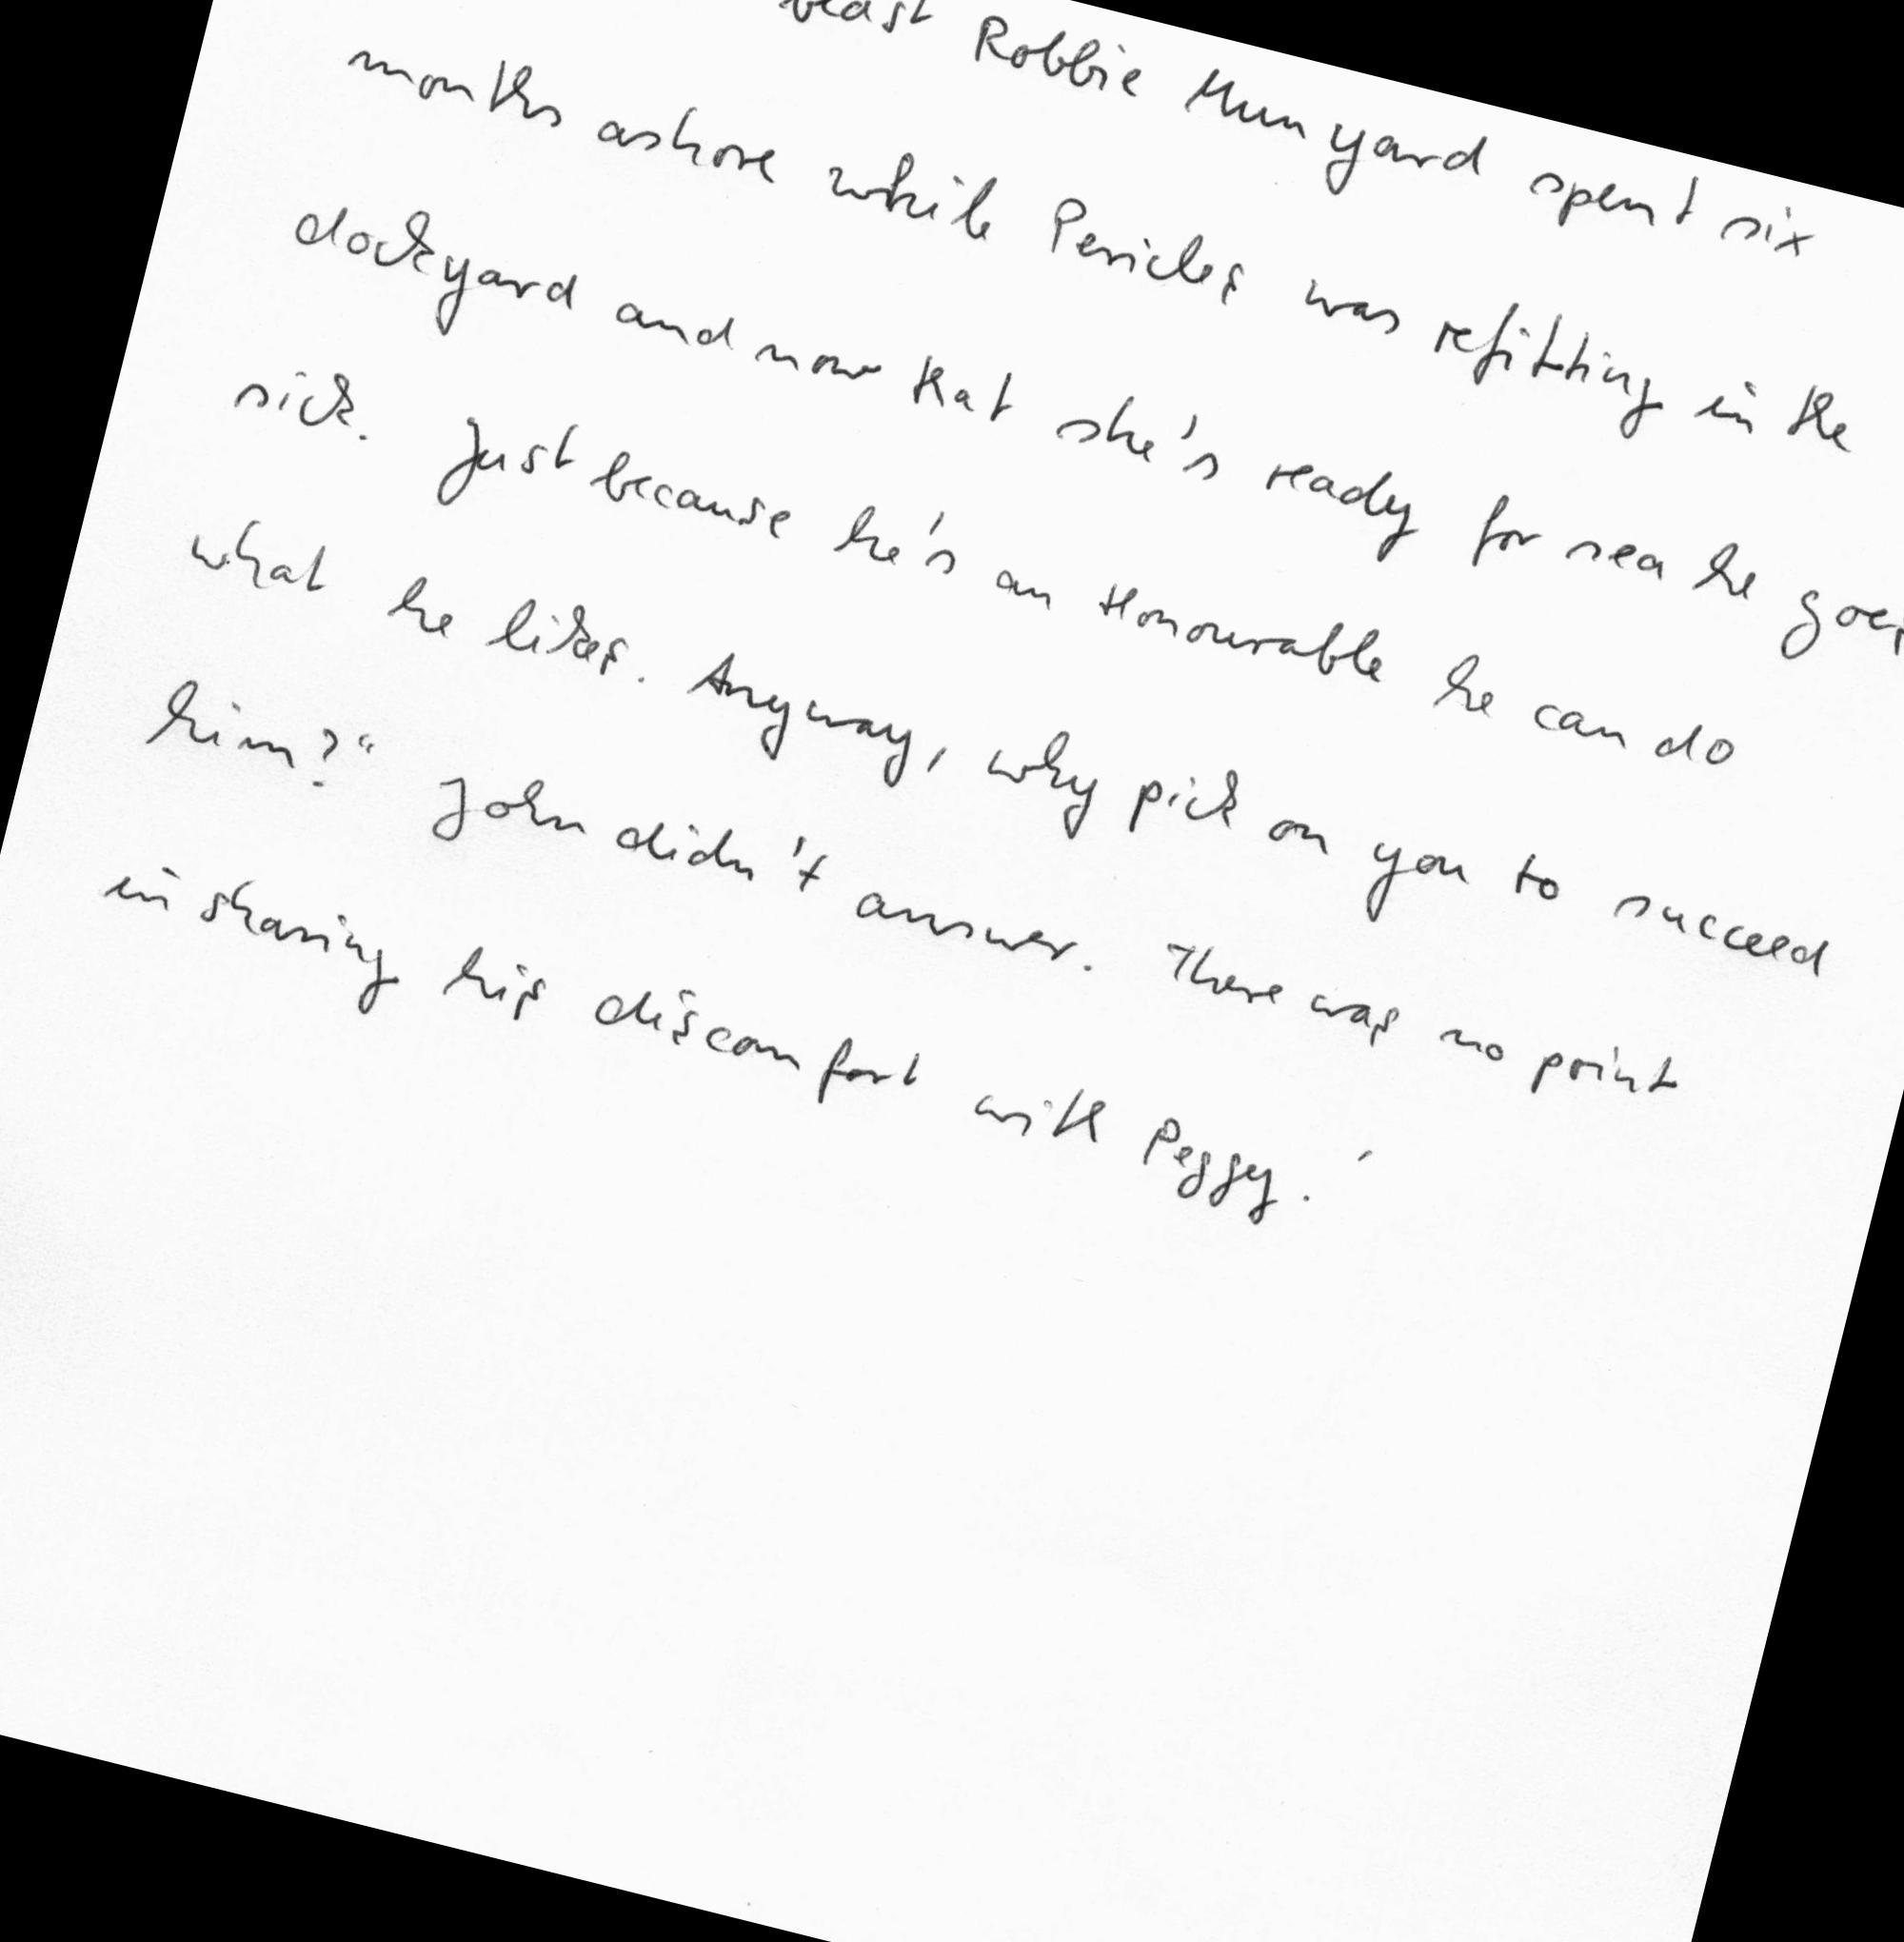 beast Robbie Munyard spent six
months ashore while Pericles was refitting in the
dockyard and now that she's ready for sea he goes
sick. Just because he's an Honourable he can do
what he likes. Anyway, why pick on you to succeed
him?" John didn't answer. There was no point
in sharing his discomfort with Peggy.